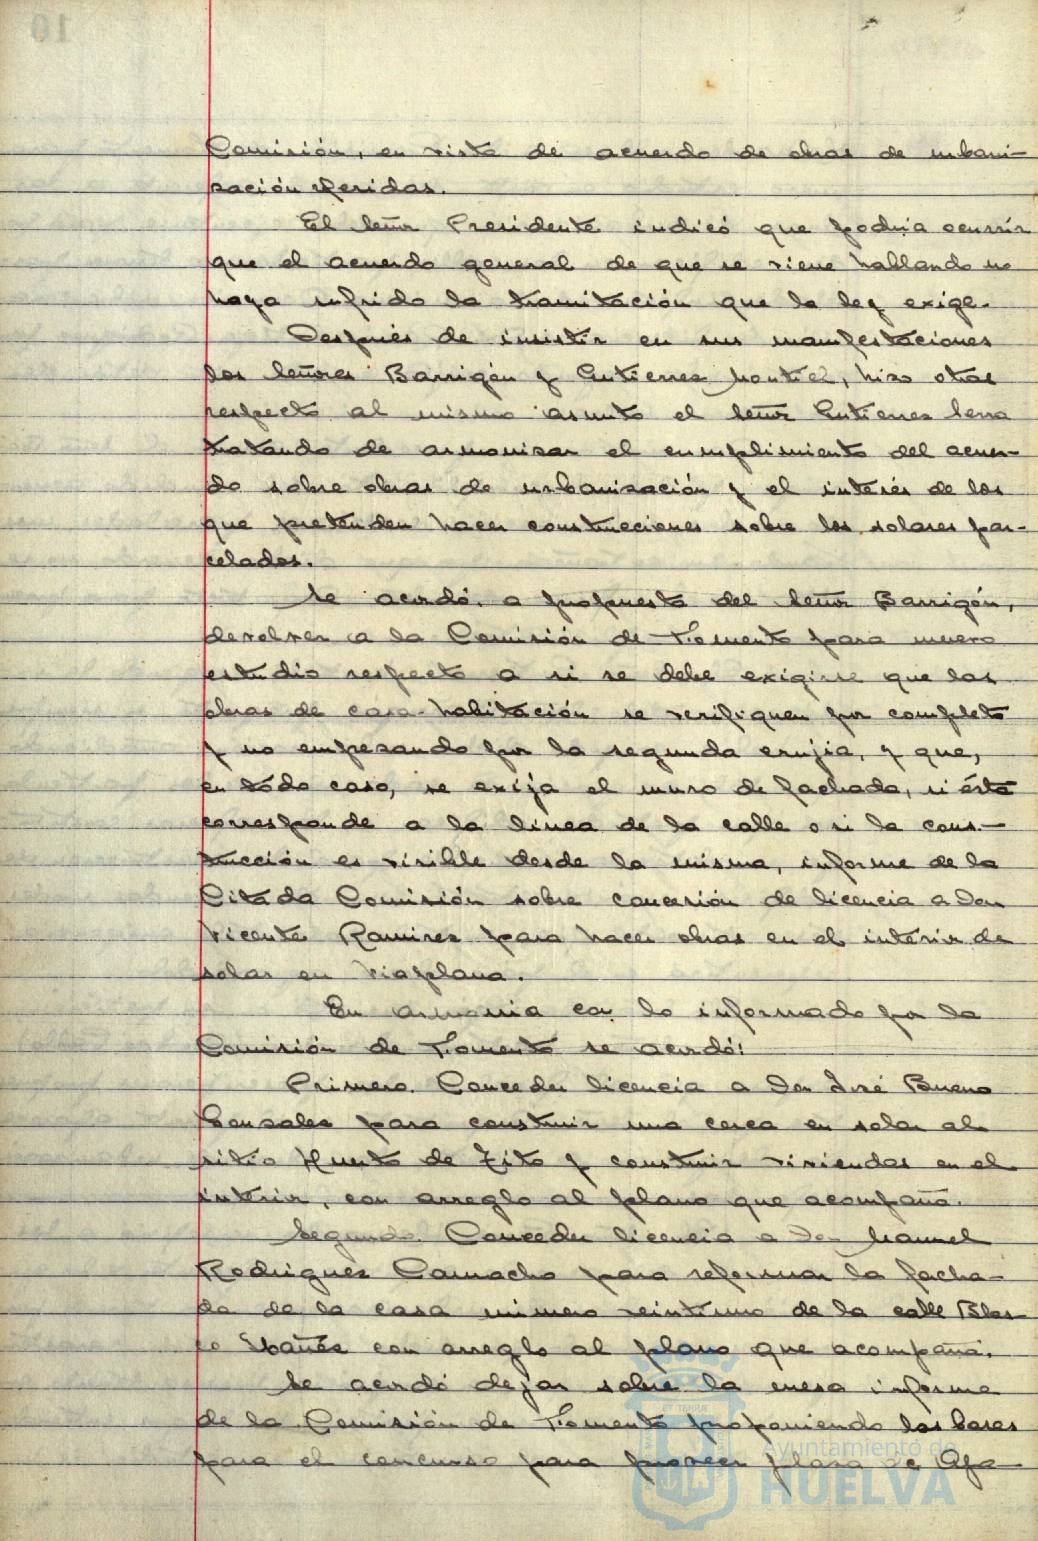 Comisión, en vista de acuerdo de obras de urbani-
zación referidas.
El Señor Presidente indicó que podría ocurrir
que el acuerdo general de que se viene hablando no
haya sufrido la tramitación que la ley exige.
Después de insistir en sus manifestaciones
los Señores Barrigón y Gutierrez Montiel, hizo otras
respecto al mismo asunto el Señor Gutierrez Serra
tratando de armonizar el cumplimiento del acuer-
do sobre obras de urbanización y el interés de los
que pretenden hacer construcciones sobre los solares par-
celados.
Se acordó, a propuesta del Señor Barrigón,
devolver a la Comisión de Fomento para nuevo
estudio respecto a si se debe exigirse que las
obras de casa-habitación se verifiquen por completo
y no empezando por la segunda crujia, y que,
en todo caso, se exija el muro de fachada, si ésta
corresponde a la línea de la calle o si la cons-
trucción es visible desde la misma, informe de la
Citada Comisión sobre concesión de licencia a Don
Vicente Ramirez para hacer obras en el interior de
solar en Viaplana.
En armonia con lo informado por la
Comisión de Fomento se acordó:
Primero. Conceder licencia a Don José Bueno
Gonzalez para construir una cerca en solar al
sitio Huerto de Tito y construir viviendas en el
interior, con arreglo al plano que acompaña.
Segundo. Conceder licencia a Don Manuel
Rodriguez Camacho para reformar la facha-
da de la casa número veintiuno de la calle Blas-
co Ibáñez con arreglo al plano que acompaña.
Se acordó dejar sobre la mesa informe
de la Comisión de Fomento proponiendo las bases
para el concurso para proveer plaza de
Ayuntamiento de
HUELVA
10